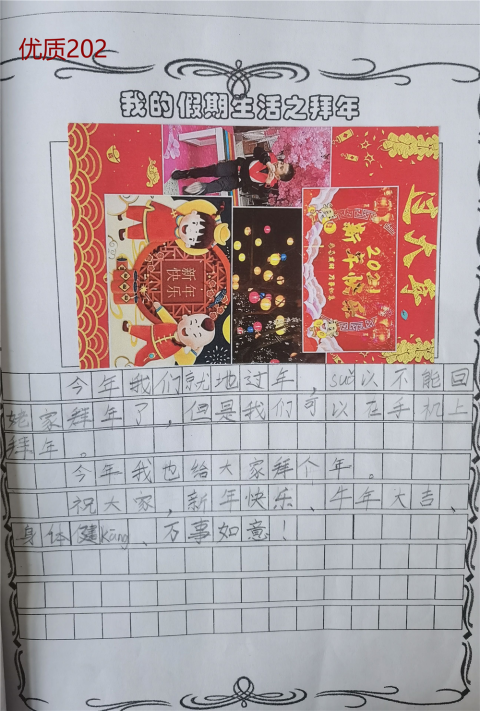 优质202
我的假期生活之拜年
过大年
新年快乐
2021
新年快乐
今年我们就地过年，suǒ以不能回
姥家拜年了，但是我们可以在手机上
拜年。
今年我也给大家拜个年。
祝大家，新年快乐、牛年大吉、
身体健Kāng、万事如意！